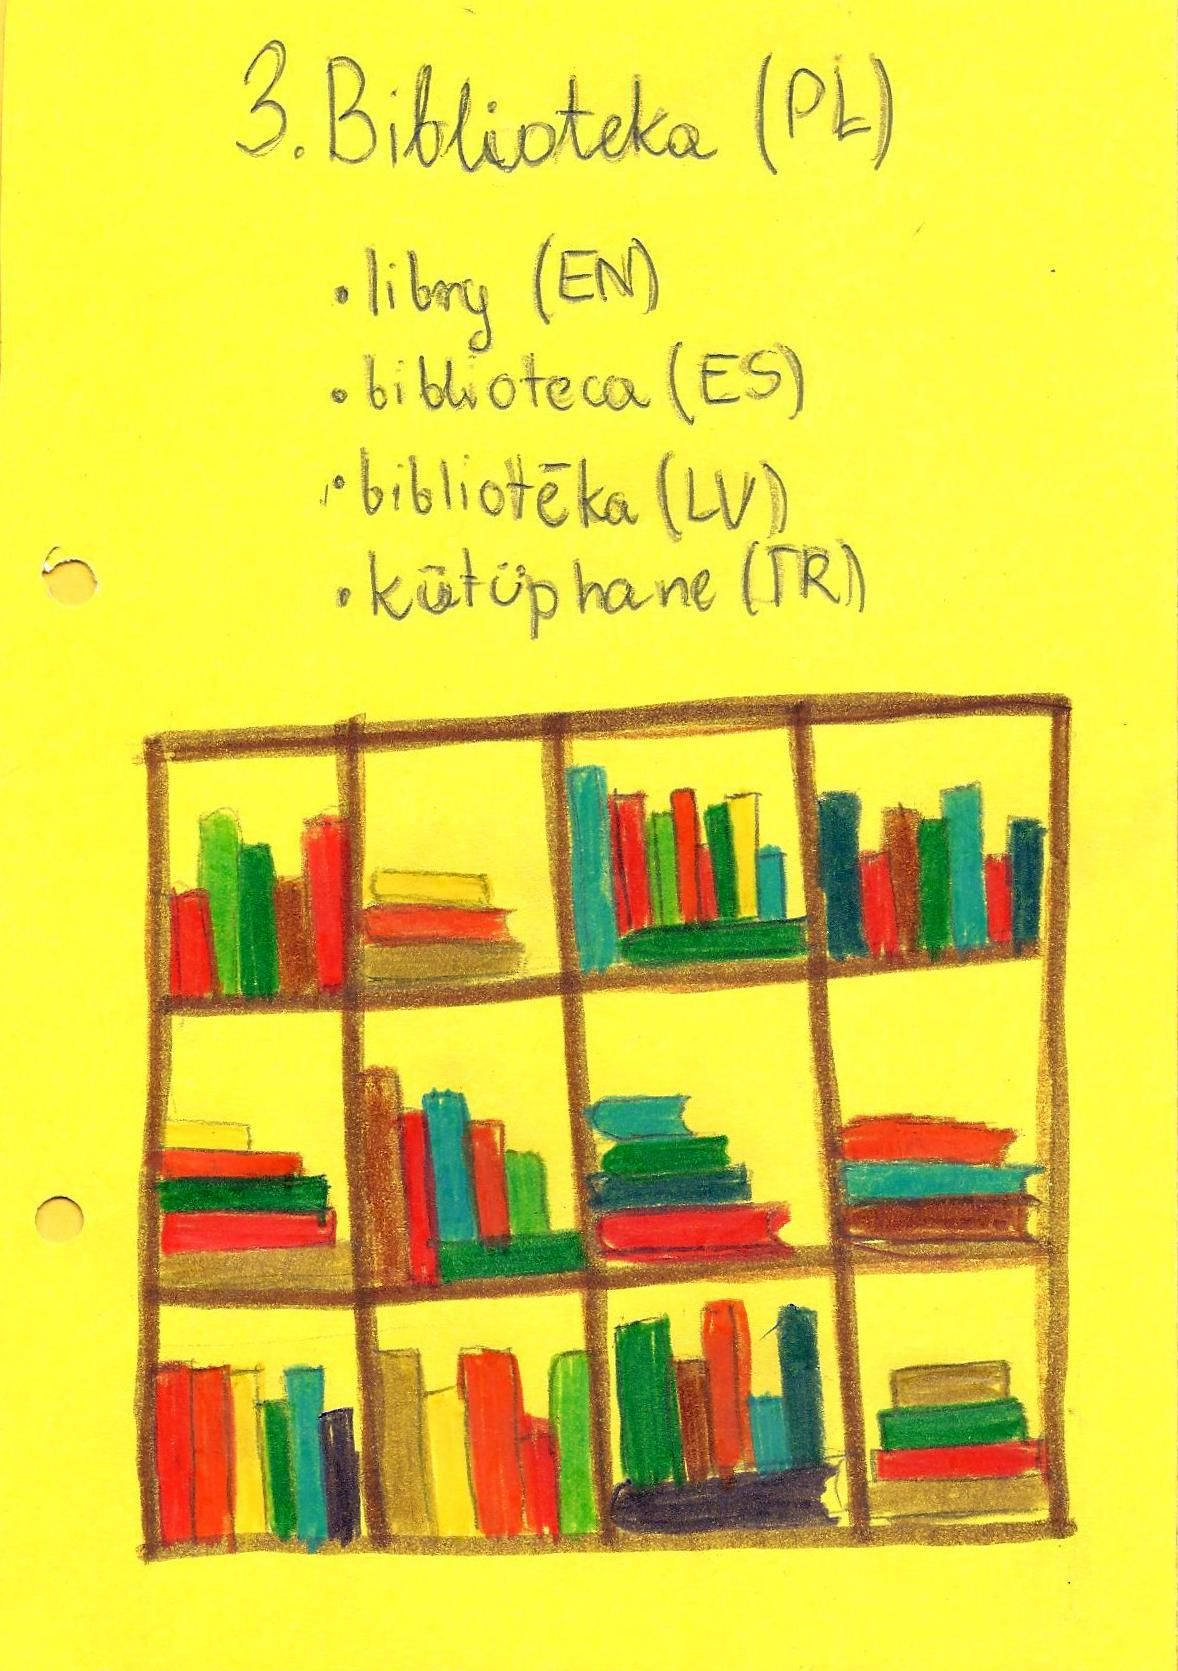 3. Biblioteka (PL)
• libry (EN)
• biblioteca (ES)
• bibliotēka (LV)
• kütüphane (TR)